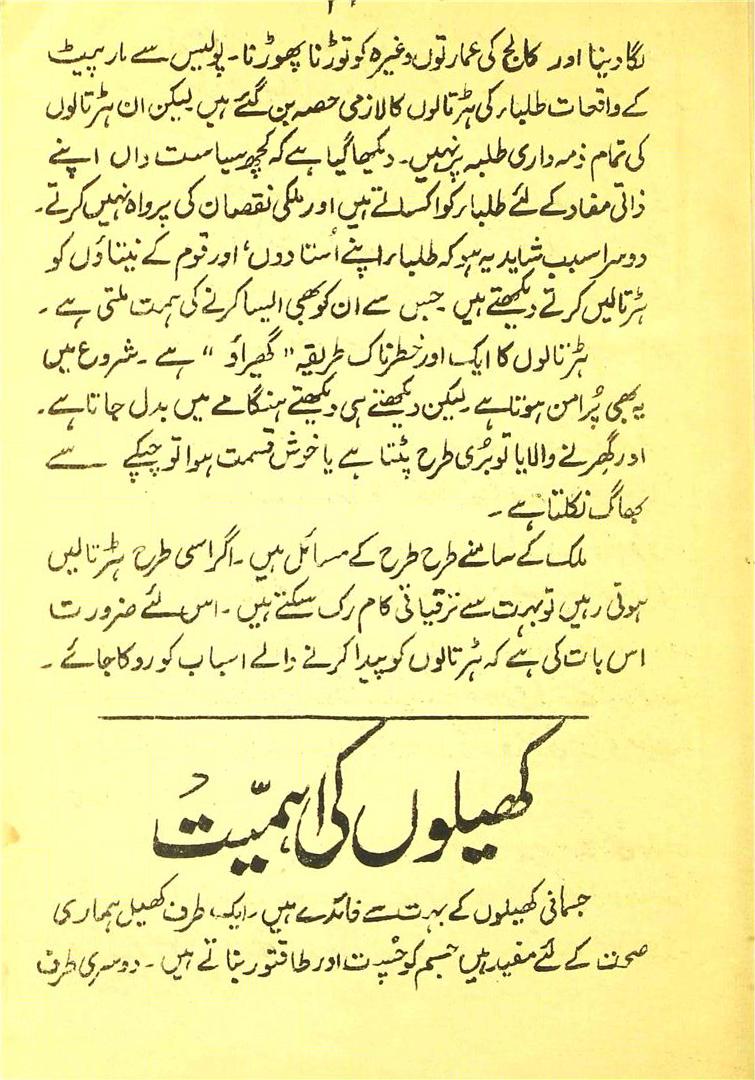 لگا دینا اور کالج کی عمارتوں وغیرہ کو توڑنا پھوڑنا۔ پولیس سے مار پیٹ
کے واقعات طلباء کی ہڑتالوں کا لازمی حصہ بن گئے ہیں لیکن ان ہڑتالوں
کی تمام ذمہ داری طلبہ پر نہیں۔ دیکھا گیا ہے کہ کچھ سیاست داں اپنے
ذاتی مفاد کے لئے طلباء کو اکساتے ہیں اور ملکی نقصان کی پرواہ نہیں کرتے۔
دوسرا سبب شاید یہ ہو کہ طلباء اپنے اُستادوں، اور قوم کے نیتاؤں کو
ہڑتالیں کرتے دیکھتے ہیں جس سے ان کو بھی ایسا کرنے کی ہمت ملتی ہے۔
ہڑتالوں کا ایک اور خطرناک طریقہ "گھیراؤ" ہے۔ شروع میں
یہ بھی پُر امن ہوتا ہے۔ لیکن دیکھتے ہی دیکھتے ہنگامے میں بدل جاتا ہے۔
اور گھِرنے والا یا تو بُری طرح پٹتا ہے یا خوش قسمت ہوا تو چپکے سے
بھاگ نکلتا ہے۔
ملک کے سامنے طرح طرح کے مسائل ہیں۔ اگر اسی طرح ہڑتالیں
ہوتی رہیں تو بہت سے ترقیاتی کام رک سکتے ہیں۔ اس لئے ضرورت
اس بات کی ہے کہ ہڑتالوں کو پیدا کرنے والے اسباب کو روکا جائے۔
کھیلوں کی اہمیّت
جسمانی کھیلوں کے بہت سے فائدے ہیں۔ ایک طرف کھیل ہماری
صحت کے لئے مفید ہیں جسم کو چُست اور طاقتور بناتے ہیں۔ دوسری طرف